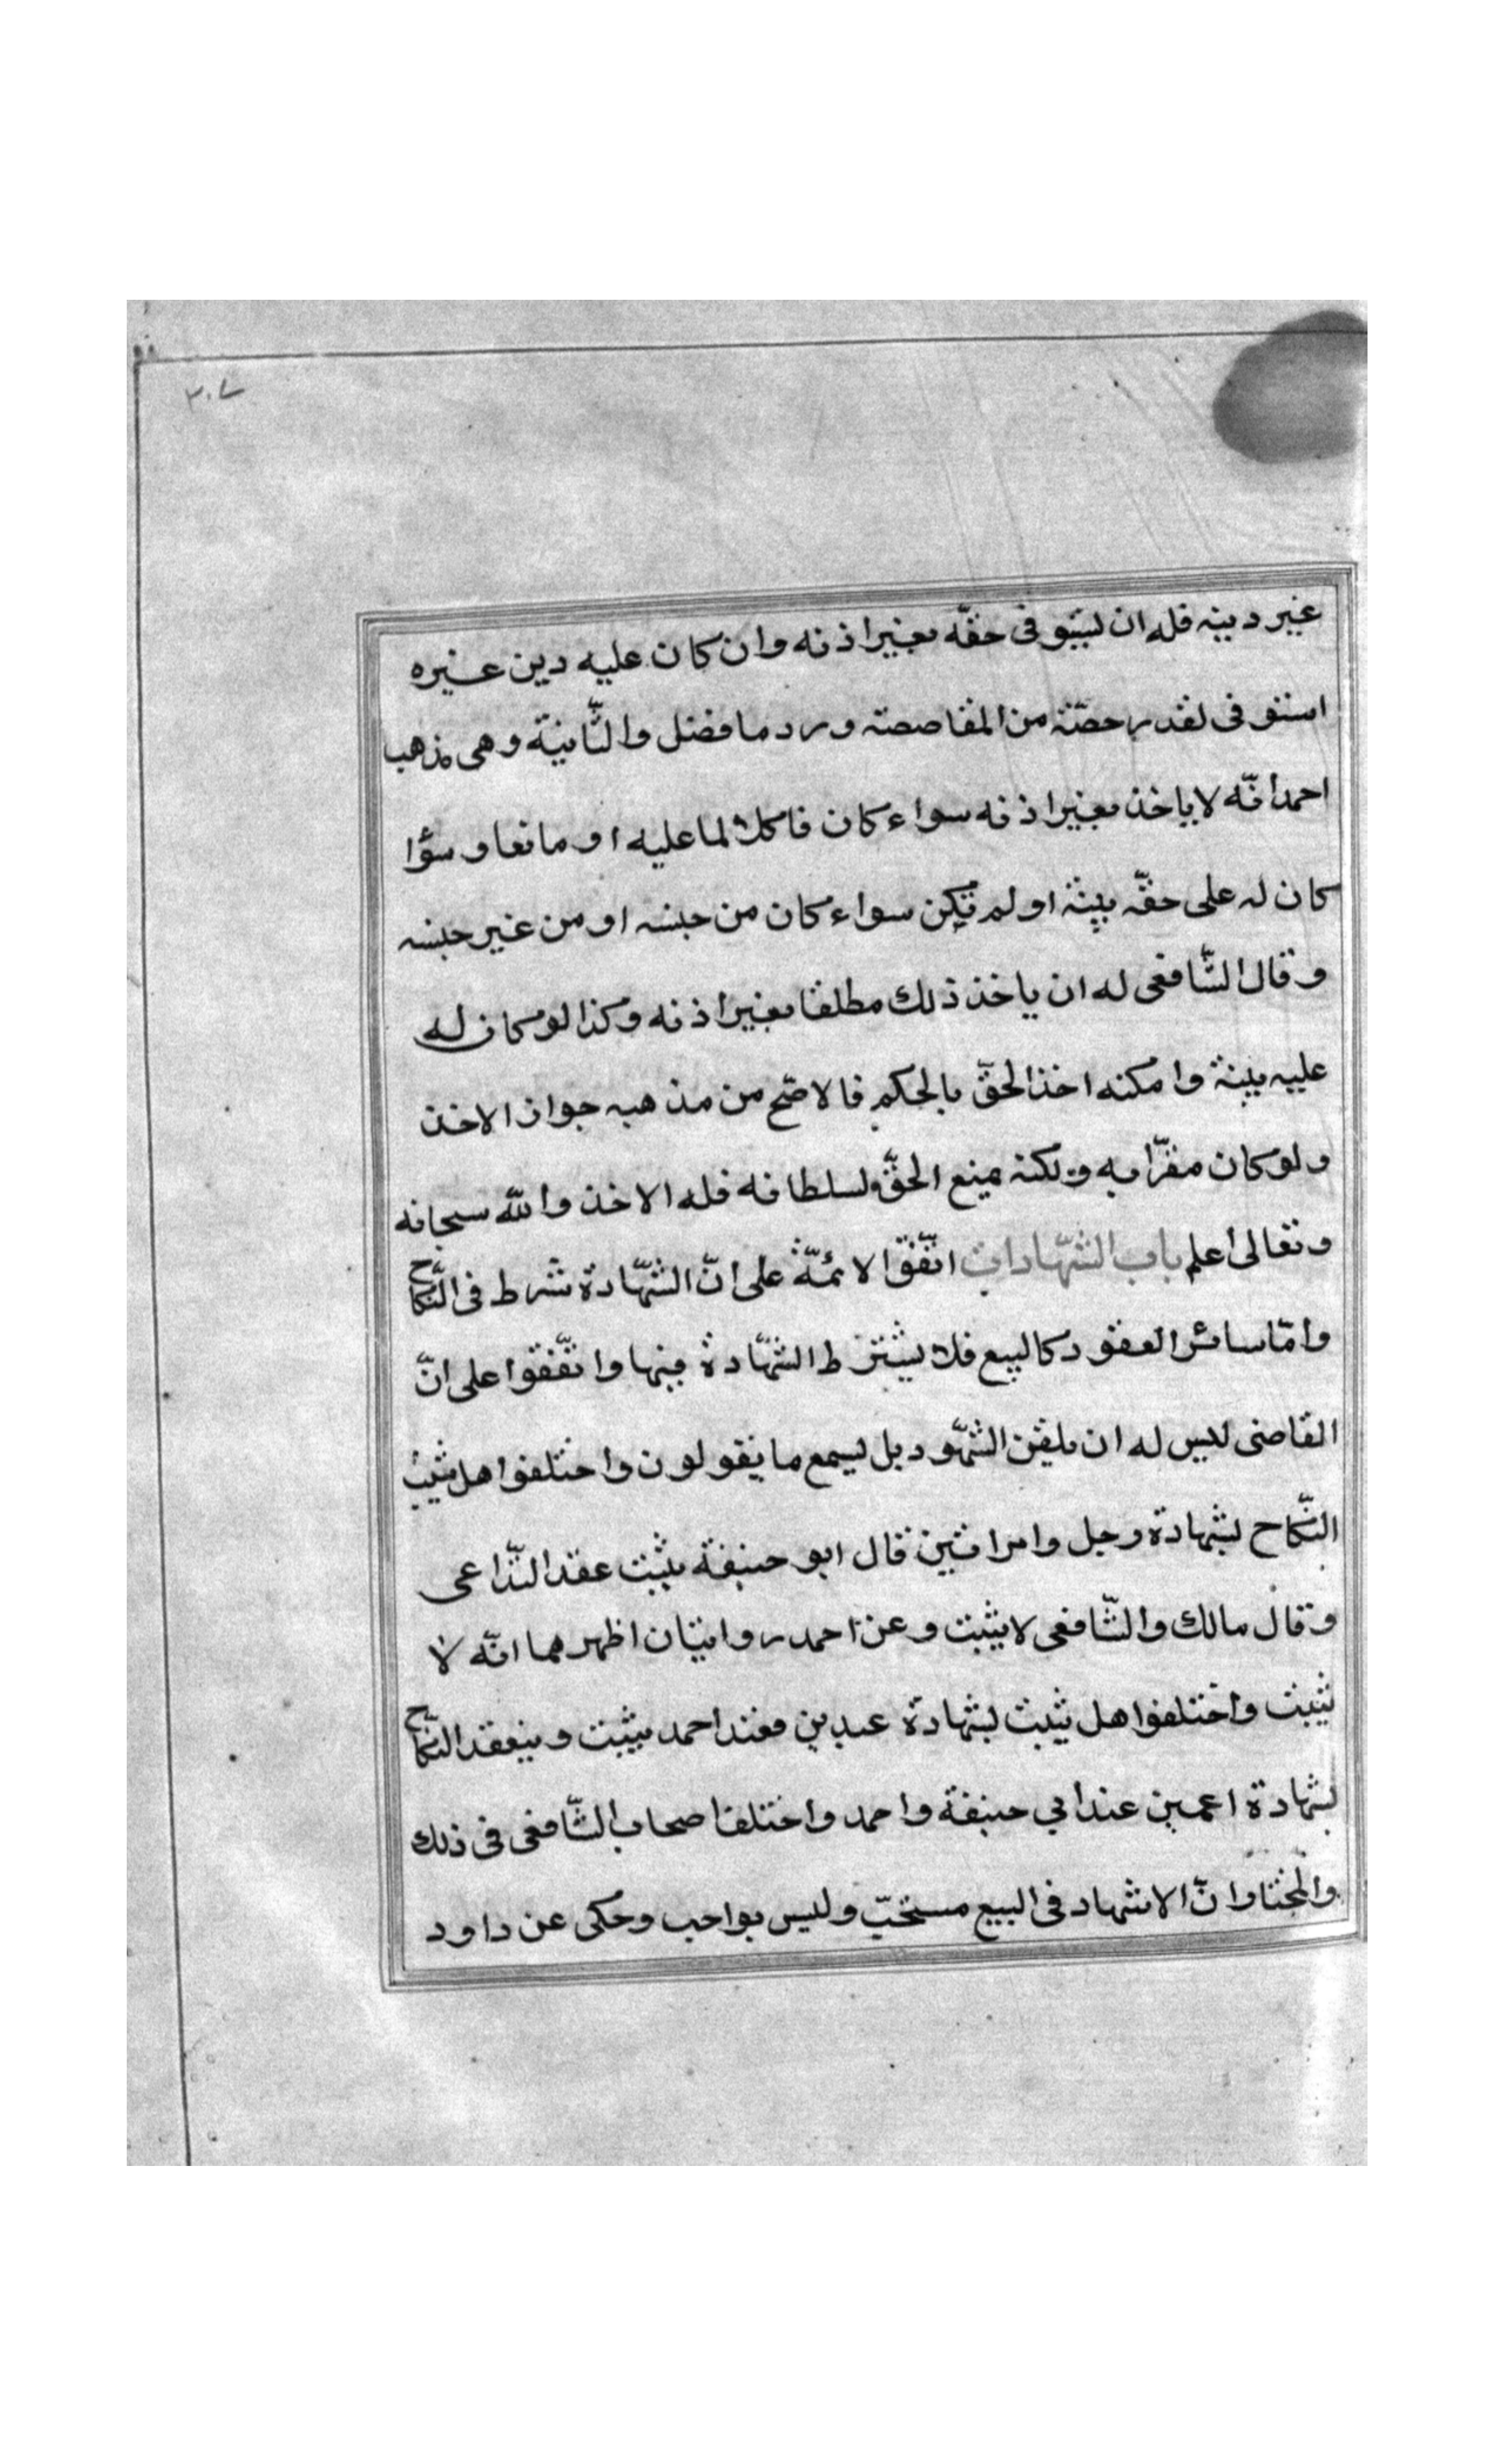 ٣٠٧
غير دينه فله ان يستوفى حقّه بغير اذنه وان كان عليه دين غيره
استوفى لقدر حصّته من المقاصصته ورد ما فضل والثّانية وهى مذهب
احمد انّه لا ياخذ بغير اذنه سواء كان فاكلا لما عليه او مانعا وسؤا
كان له على حقّه بينة او لم تكن سواء كان من جنسه او من غير جنسه
وقال الشّافعى له ان ياخذ ذلك مطلقا بغير اذنه وكذا لو كان له
عليه بينة وامكنه اخذ الحقّ بالحكم فالاصّح من مذهبه جواز الاخذ
ولو كان مقرّا به ولكنه يمنع الحقّ لسلطانه فله الاخذ والله سبحانه
وتعالى اعلم باب الشّهادات اتّفقوا الائمّة على انّ الشّهادة شرط فى النّكاح
وامّا سائر العقود كالبيع فلا يشترط الشّهادة فيها واتّفقوا على انّ
القاضى ليس له ان يلقن الشّهود بل يسمع ما يقولون واختلفوا هل يثبت
النّكاح بشهادة رجل وامراتين قال ابو حنيفة يثبت عند التّداعى
وقال مالك والشّافعى لا يثبت وعن احمد روايتان اظهرهما انّه لا
يثبت واختلفوا هل يثبت بشهادة عبدين فعند احمد يثبت وينعقد النّكاح
بشهادة اعميين عند ابي حنيفة واحمد واختلف اصحاب الشّافعى فى ذلك
والمختار انّ الاشهاد فى البيع مستحبّ وليس بواجب وحكى عن داود